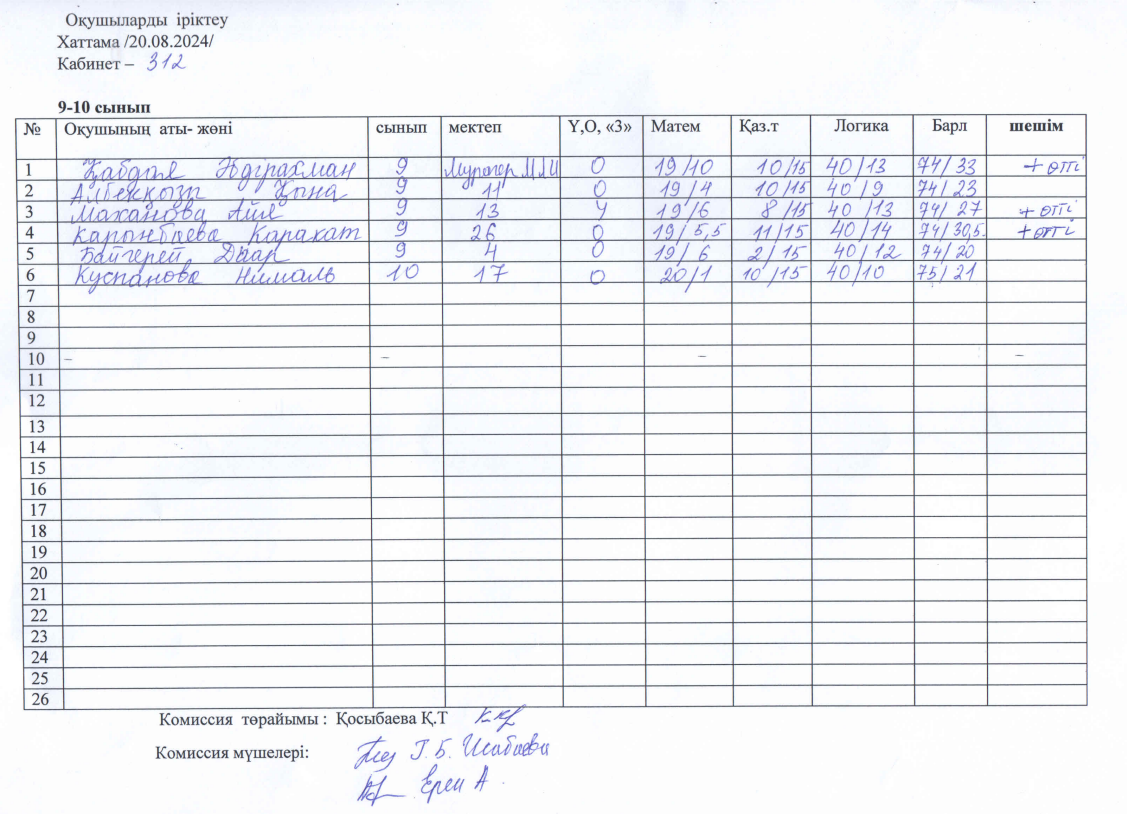 Оқушыларды іріктеу
Хаттама /20.08.2024/
Кабинет – 312
9-10 сынып
№ Оқушының аты- жөні сынып мектеп Ү,О, «3» Матем Қаз.т Логика Барл шешім
1 Қабдыл Әдірахман 9 Мұрагер МЛИ О 19/10 10/15 40/13 74/33 + өтті
2 Айбекқызы 9 11 О 19/4 10/15 40/9 74/23
3 Маханова 9 13 У 19/6 8/15 40/13 74/27 + өтті
4 Каронбаева Каракат 9 26 О 19/5,5 11/15 40/14 74/30,5 + өтті
5 Байгерей Даар 9 4 О 19/6 2/15 40/12 74/20
6 Куспанова 10 17 О 20/1 10/15 40/10 75/21
7
8
9
10 – – – –
11
12
13
14
15
16
17
18
19
20
21
22
23
24
25
26
Комиссия төрайымы : Қосыбаева Қ.Т
Комиссия мүшелері: Г.Б. Исабаева
Ерен А.